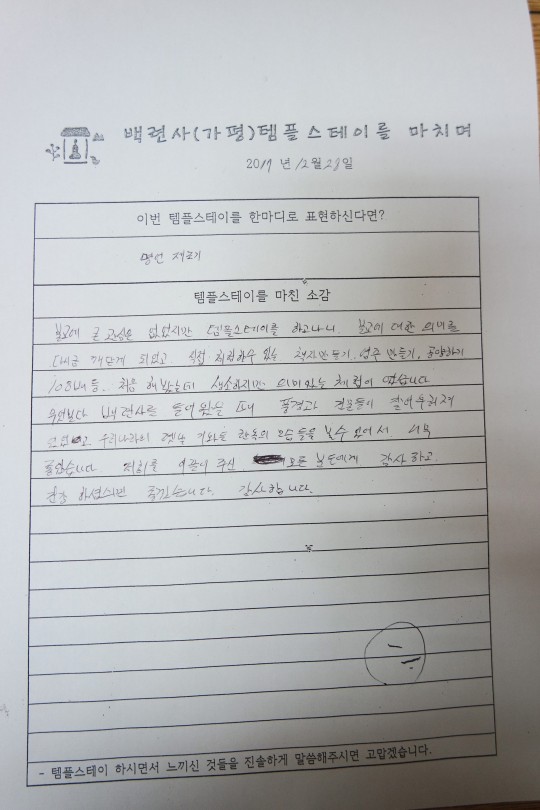 백련사(가평)템플스테이를 마치며
2019 년 12월 23일
이번 템플스테이를 한마디로 표현하신다면?
템플스테이를 마친 소감
불교에 큰 관심은 없었지만 템플스테이를 하고나니 불교에 대한 의미를
다시금 깨닫게 되었고 직접 체험하수 있는 책자만들기, 염주 만들기, 공양하기
108배 등. 처음 해봤는데 생소하지만 의미있는 체험이 였습니다
무엇보다 백련사를 들어왔을 때 풍경과 건물들이
우리나라의 옛날 기와와 한옥의 모습들을 볼수 있어서 너무
좋았습니다. 저희를 이끌어 주신 모든 분들에게 감사하고
건강 하셨으면 좋겠습니다. 감사합니다.
- 템플스테이 하시면서 느끼신 것들을 진솔하게 말씀해주시면 고맙겠습니다.